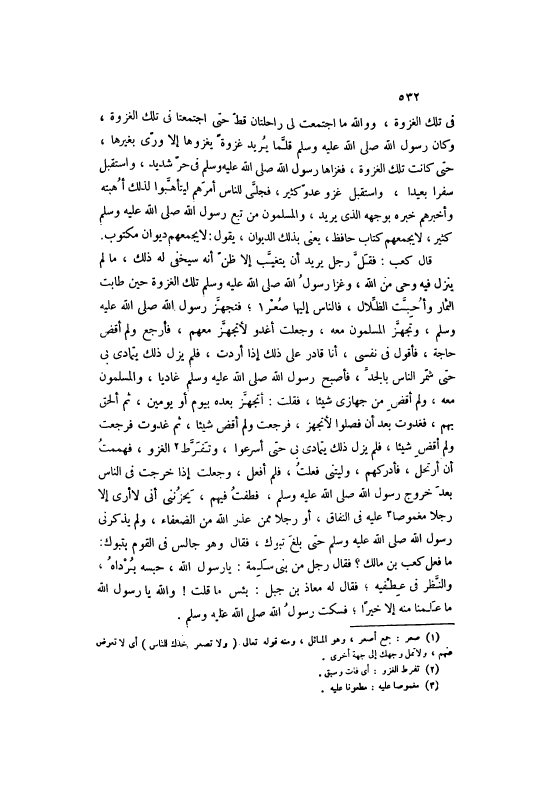 ٥٣٢
فى تلك الغزوة ، ووالله ما اجتمعت لى راحلتان قطّ حتى اجتمعتا فى تلك الغزوة ،
وكان رسول الله صلى الله عليه وسلم قلَّما يُريد غزوةً يغزوها إلا ورّى بغيرها ،
حتى كانت تلك الغزوة ، فغزاها رسول الله صلى الله عليه وسلم فى حرّ شديد ، واستقبل
سفرا بعيدا ، واستقبل غزو عدوّ كثير ، فجلَّى للناس أمرَهم ليتأهَّبوا لذلك أُهبته
وأخبرهم خبره بوجهه الذى يريد ، والمسلمون من تبع رسول الله صلى الله عليه وسلم
كثير ، لايجمعهم كتاب حافظ، يعنى بذلك الديوان ، يقول : لايجمعهم ديوان مكتوب.
قال كعب : فقلَّ رجل يريد أن يتغيَّب إلا ظنّ أنه سيخفى له ذلك ، ما لم
ينزل فيه وحى من الله ، وغزا رسولُ الله صلى الله عليه وسلم تلك الغزوة حين طابت
الثمار وأُحِبَّت الظِّلال ، فالناس إليها صُعْرٌ ١ ؛ فتجهَّز رسول الله صلى الله عليه
وسلم ، وتجهَّز المسلمون معه ، وجعلت أغدو لأتجهَّز معهم ، فأرجع ولم أقض
حاجة ، فأقول فى نفسى ، أنا قادر على ذلك إذا أردت ، فلم يزل ذلك يتمادى بى
حتى شمَّر الناس بالجدّ ، فأصبح رسول الله صلى الله عليه وسلم غاديا ، والمسلمون
معه ، ولم أقضِ من جهازى شيئا ، فقلت : أتجهَّز بعده بيوم أو يومين ، ثم ألحق
بهم ، فغدوت بعد أن فصلوا لأتجهز ، فرجعت ولم أقض شيئا ، ثم غدوت فرجعت
ولم أقضِ شيئا ، فلم يزل ذلك يتمادى بى حتى أسرعوا ، وتَفَرَّط٢ الغزو ، فهممتُ
أن أرتحل ، فأدركهم ، وليتنى فعلتُ ، فلم أفعل ، وجعلت إذا خرجت فى الناس
بعدَ خروج رسول الله صلى الله عليه وسلم ، فطفتُ فيهم ، يَحزُننى أنى لاأرى إلا
رجلا مغموصا٣ عليه فى النفاق ، أو رجلا ممن عذر الله من الضعفاء ، ولم يذكرنى
رسول الله صلى الله عليه وسلم حتى بلغَ تبوك ، فقال وهو جالس فى القوم بتبوك:
ما فعل كعب بن مالك ؟ فقال رجل من بنى سَلِمة : يارسول الله ، حبسه بُرْداهُ ،
والنَّظر فى عِطْفيه ؛ فقال له معاذ بن جبل : بئس ما قلت ! والله يا رسول الله
ما عَلِمنا منه إلا خيرًا ؛ فسكت رسولُ الله صلى الله عليه وسلم .
(١) صعر : جمع أصعر ، وهو المائل ، ومنه قوله تعالى ( ولا تصعر خدك للناس ) أى لا تعرض
عنهم ، ولاتمل وجهك إلى جهة أخرى .
(٢) تفرط الغزو : أى فات وسبق .
(٣) مغموصا عليه : مطعونا عليه .